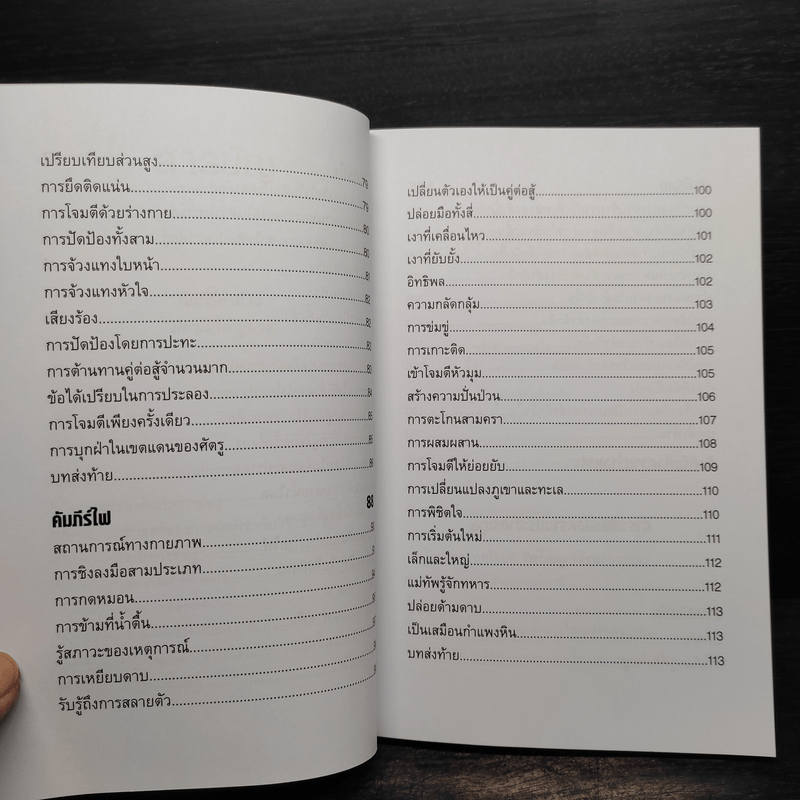 เปรียบเทียบส่วนสูง 79
การยึดติดแน่น 79
การโจมตีด้วยร่างกาย 80
การปัดป้องทั้งสาม 80
การจ้วงแทงใบหน้า 81
การจ้วงแทงหัวใจ 82
เสียงร้อง 82
การปัดป้องโดยการปะทะ 83
การต้านทานคู่ต่อสู้จำนวนมาก 83
ข้อได้เปรียบในการประลอง 84
การโจมตีเพียงครั้งเดียว 85
การบุกฝ่าในเขตแดนของศัตรู
บทส่งท้าย
คัมภีร์ไฟ 88
สถานการณ์ทางกายภาพ
การชิงลงมือสามประเภท
การกดหมอน
การข้ามที่น้ำตื้น
รู้สภาวะของเหตุการณ์
การเหยียบดาบ
รับรู้ถึงการสลายตัว
เปลี่ยนตัวเองให้เป็นคู่ต่อสู้ 100
ปล่อยมือทั้งสี่ 100
เงาที่เคลื่อนไหว 101
เงาที่ยับยั้ง 102
อิทธิพล 102
ความกลัดกลุ้ม 103
การข่มขู่ 104
การเกาะติด 105
เข้าโจมตีหัวมุม 105
สร้างความปั่นป่วน 106
การตะโกนสามครา 107
การผสมผสาน 108
การโจมตีให้ย่อยยับ 109
การเปลี่ยนแปลงภูเขาและทะเล 110
การพิชิตใจ 110
การเริ่มต้นใหม่ 111
เล็กและใหญ่ 112
แม่ทัพรู้จักทหาร 112
ปล่อยด้ามดาบ 113
เป็นเสมือนกำแพงหิน 113
บทส่งท้าย 113